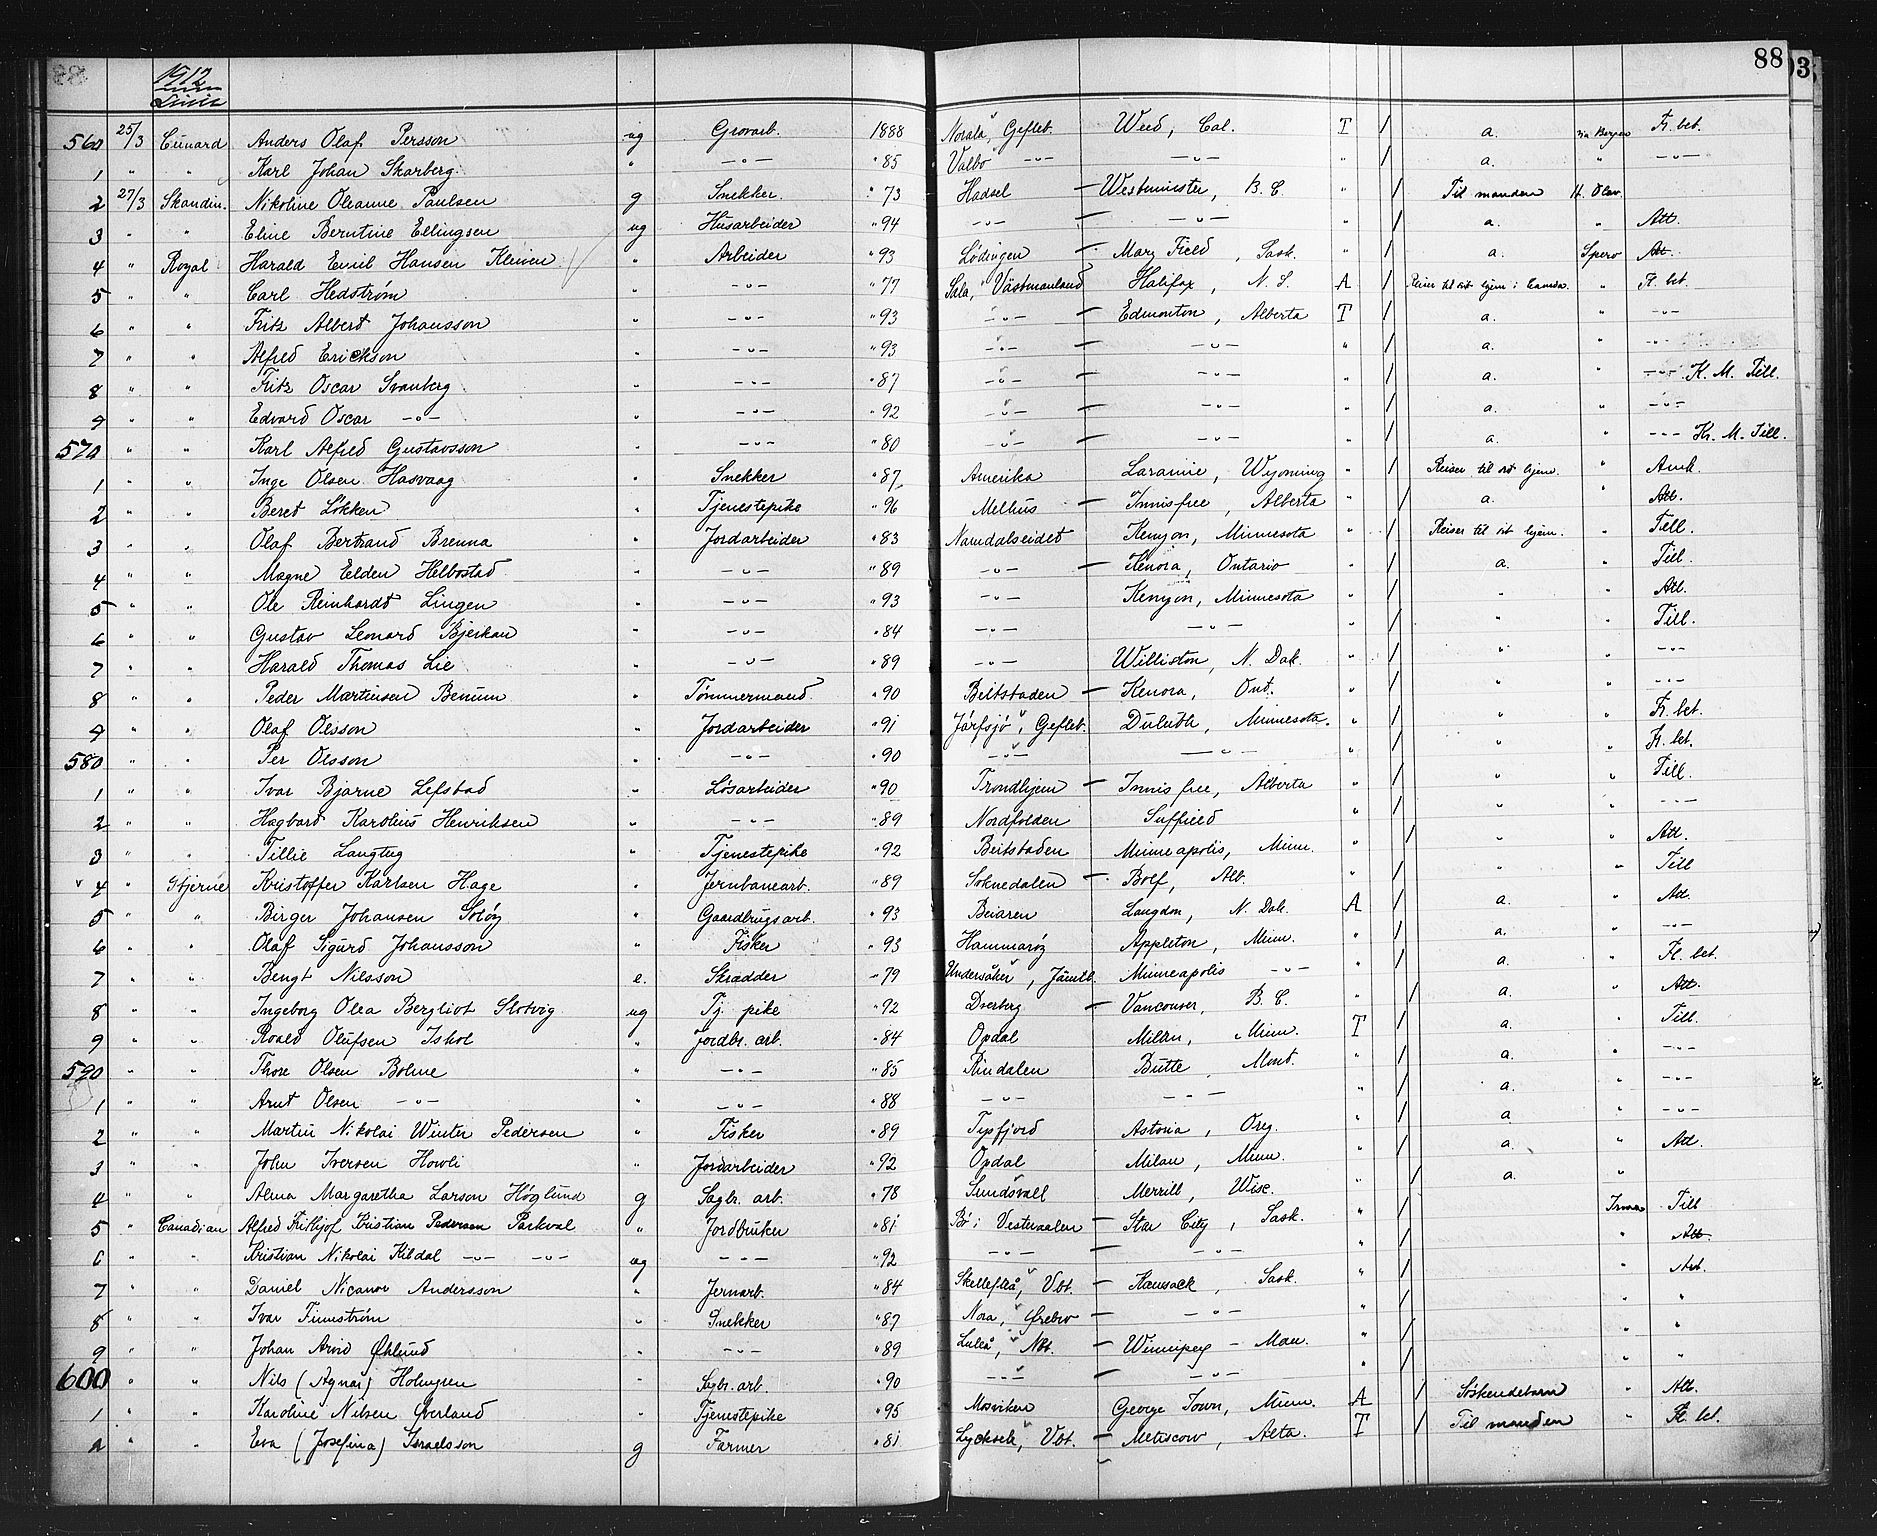 88
1912
Linie
560 25/3 Cunard Anders Olaf Persson ug Grovarb. 1888 Norala, Gefleb. Weed, Cal. T / a. via Bergen Fr. bet.
1 " " Karl Johan Skarberg " -"- " 85 Valbo -"- -"- " / a. " -"-
2 27/3 Skandin. Nikoline Oleanne Paulsen g Snekker " 73 Hadsel - Westminster, B. C. " / Til manden H. Olav.
3 " " Eline Berntine Ellingsen ug Husarbeider " 94 -"- - -"- " / a. " Att.
4 " Royal Harald Emil Hansen Kleiven " Arbeider " 93 Lødingen - Mary Field, Sask. " / a. Spero Att.
5 " " Carl Hedstrøm " -"- " 77 Sala, Västmanland Halifax, N. S. A / Reiser til sit hjem i Canada. " Fl. bet.
6 " " Fritz Albert Johansson " -"- " 93 -"- - Edmonton, Alberta T / a. " -"-
7 " " Alfred Erickson " -"- " 93 -"- - -"- " / a. " -"-
8 " " Fritz Oscar Svanberg " -"- " 87 -"- - -"- " / a. " -"- K. M. Till.
9 " " Edvard Oscar -"- " -"- " 92 -"- - -"- " / a. " -"-
570 " " Karl Alfred Gustavsson " -"- " 80 -"- - -"- " / a. " -"- K. M. Till.
1 " " Inge Olsen Hasvaag " Snekker " 87 Amerika Laramie, Wyoming " / Reiser til sit hjem. " Amk.
2 " " Beret Løkken " Tjenestepike " 96 Melhus - Innisfree, Alberta " / a. " Att.
3 " " Olaf Bertrand Brenna " Jordarbeider " 83 Namdalseidet Kenyon, Minnesota " / Reiser til sit hjem. " Till.
4 " " Magne Elden Helbostad " -"- " 89 -"- - Kenora, Ontario " / a. " Till.
5 " " Ole Reinhardt Lingen " -"- " 93 -"- Kenyon, Minnesota " / " " Att.
6 " " Gustav Leonard Bjerkan " -"- " 84 -"- -"- " / " " Till.
7 " " Harald Thomas Lie " -"- " 89 -"- Williston, N. Dak. " / " " -"-
8 " " Peder Martinsen Benum " Tømmermand " 90 Beitstaden - Kenora, Ont. " / " " -"-
9 " " Olaf Olsson " Jordarbeider " 91 Järfsjö, Gefleb. Duluth, Minnesota. " / " " Fr. bet.
580 " " Per Olsson " -"- " 90 -"- -"- " / " " Fr. bet.
1 " " Ivar Bjarne Lefstad " Løsarbeider " 90 Trondhjem - Innisfree, Alberta " / " " Till.
2 " " Hagbart Karolius Henriksen " -"- " 89 Nordfolden Suffield " / " " -"-
3 " " Tillie Langteg " Tjenestepike " 92 Beitstaden Minneapolis, Minn. " / " " Att.
4 " Stjerne Kristoffer Karlsen Hage " Jernbanearb. " 89 Soknedalen - Bolf, Alb. " / " " Till
5 " " Birger Johansen Soløy " Gaardbrugsarb. " 93 Beiaren Langdon, N. Dak. A / a. " Att.
6 " " Olaf Sigurd Johansson " Fisker " 93 Hammarøy Appleton, Minn. " / a. " -"-
7 " " Bengt Nilsson e. Skrædder " 79 Undersåker, Jämtl. Minneapolis -"- " / a. " Fl. bet.
8 " " Ingeborg Olea Bergliot Slotvig ug Tj. pike " 92 Dverberg - Vancouver, B. C. " / a. " Att.
9 " " Roald Olufsen Ishol " Jordbr. arb. " 84 Opdal Milan, Minn. T / a. " Till.
590 " " Thore Olsen Bolme " -"- " 85 Rindalen Butte, Mont. " / a. " -"-
1 " " Arnt Olsen -"- " -"- " 88 -"- -"- " / a. " -"-
2 " " Martin Nikolai Winter Pedersen " Fisker " 89 Tysfjord Astoria, Oreg. " / a " -"-
3 " " John Iversen Howli " Jordarbeider " 92 Opdal Milan, Minn. " / a. " Att.
4 " " Alma Margaretha Larson Høglund g Sagbr. arb. " 78 Sundsvall Merrill, Wisc. " / a. "
5 " Canadian Alfred Fritkjof Kristian Pedersen Parkval " Jordbruker " 81 Bø i Vesteraalen - Star City, Sask. " / Irma Till
6 " " Kristian Nikolai Kildal -"- -"- ug -"- " 92 -"- - -"- " / " Att.
7 " " Daniel Nicanor Andersson " Jernarb. " 84 Skellefteå, Vbt. - Kamsack, Sask. " / " Att.
8 " " Ivar Finnstrøm " Snekker " 87 Nora, Ørebro - -"- " / " "
9 " " Johan Arvid Øhlund " -"- " 89 Luleå, Nbt. - Winnipeg - Man. " / " "
600 " " Nils (Agnar) Holmgren " Sagbr. arb. " 90 -"- - -"- " / " "
1 " " Karoline Nilsen Øverland " Tjenestepike " 95 Mosviken George Town, Minn. A / Søskendebarn " Att.
2 " " Eva (Josefina) Israelsson g Farmer " 81 Lycksele, Vbt. - Metiscow, Alta. T / Til manden " Fl. bet.